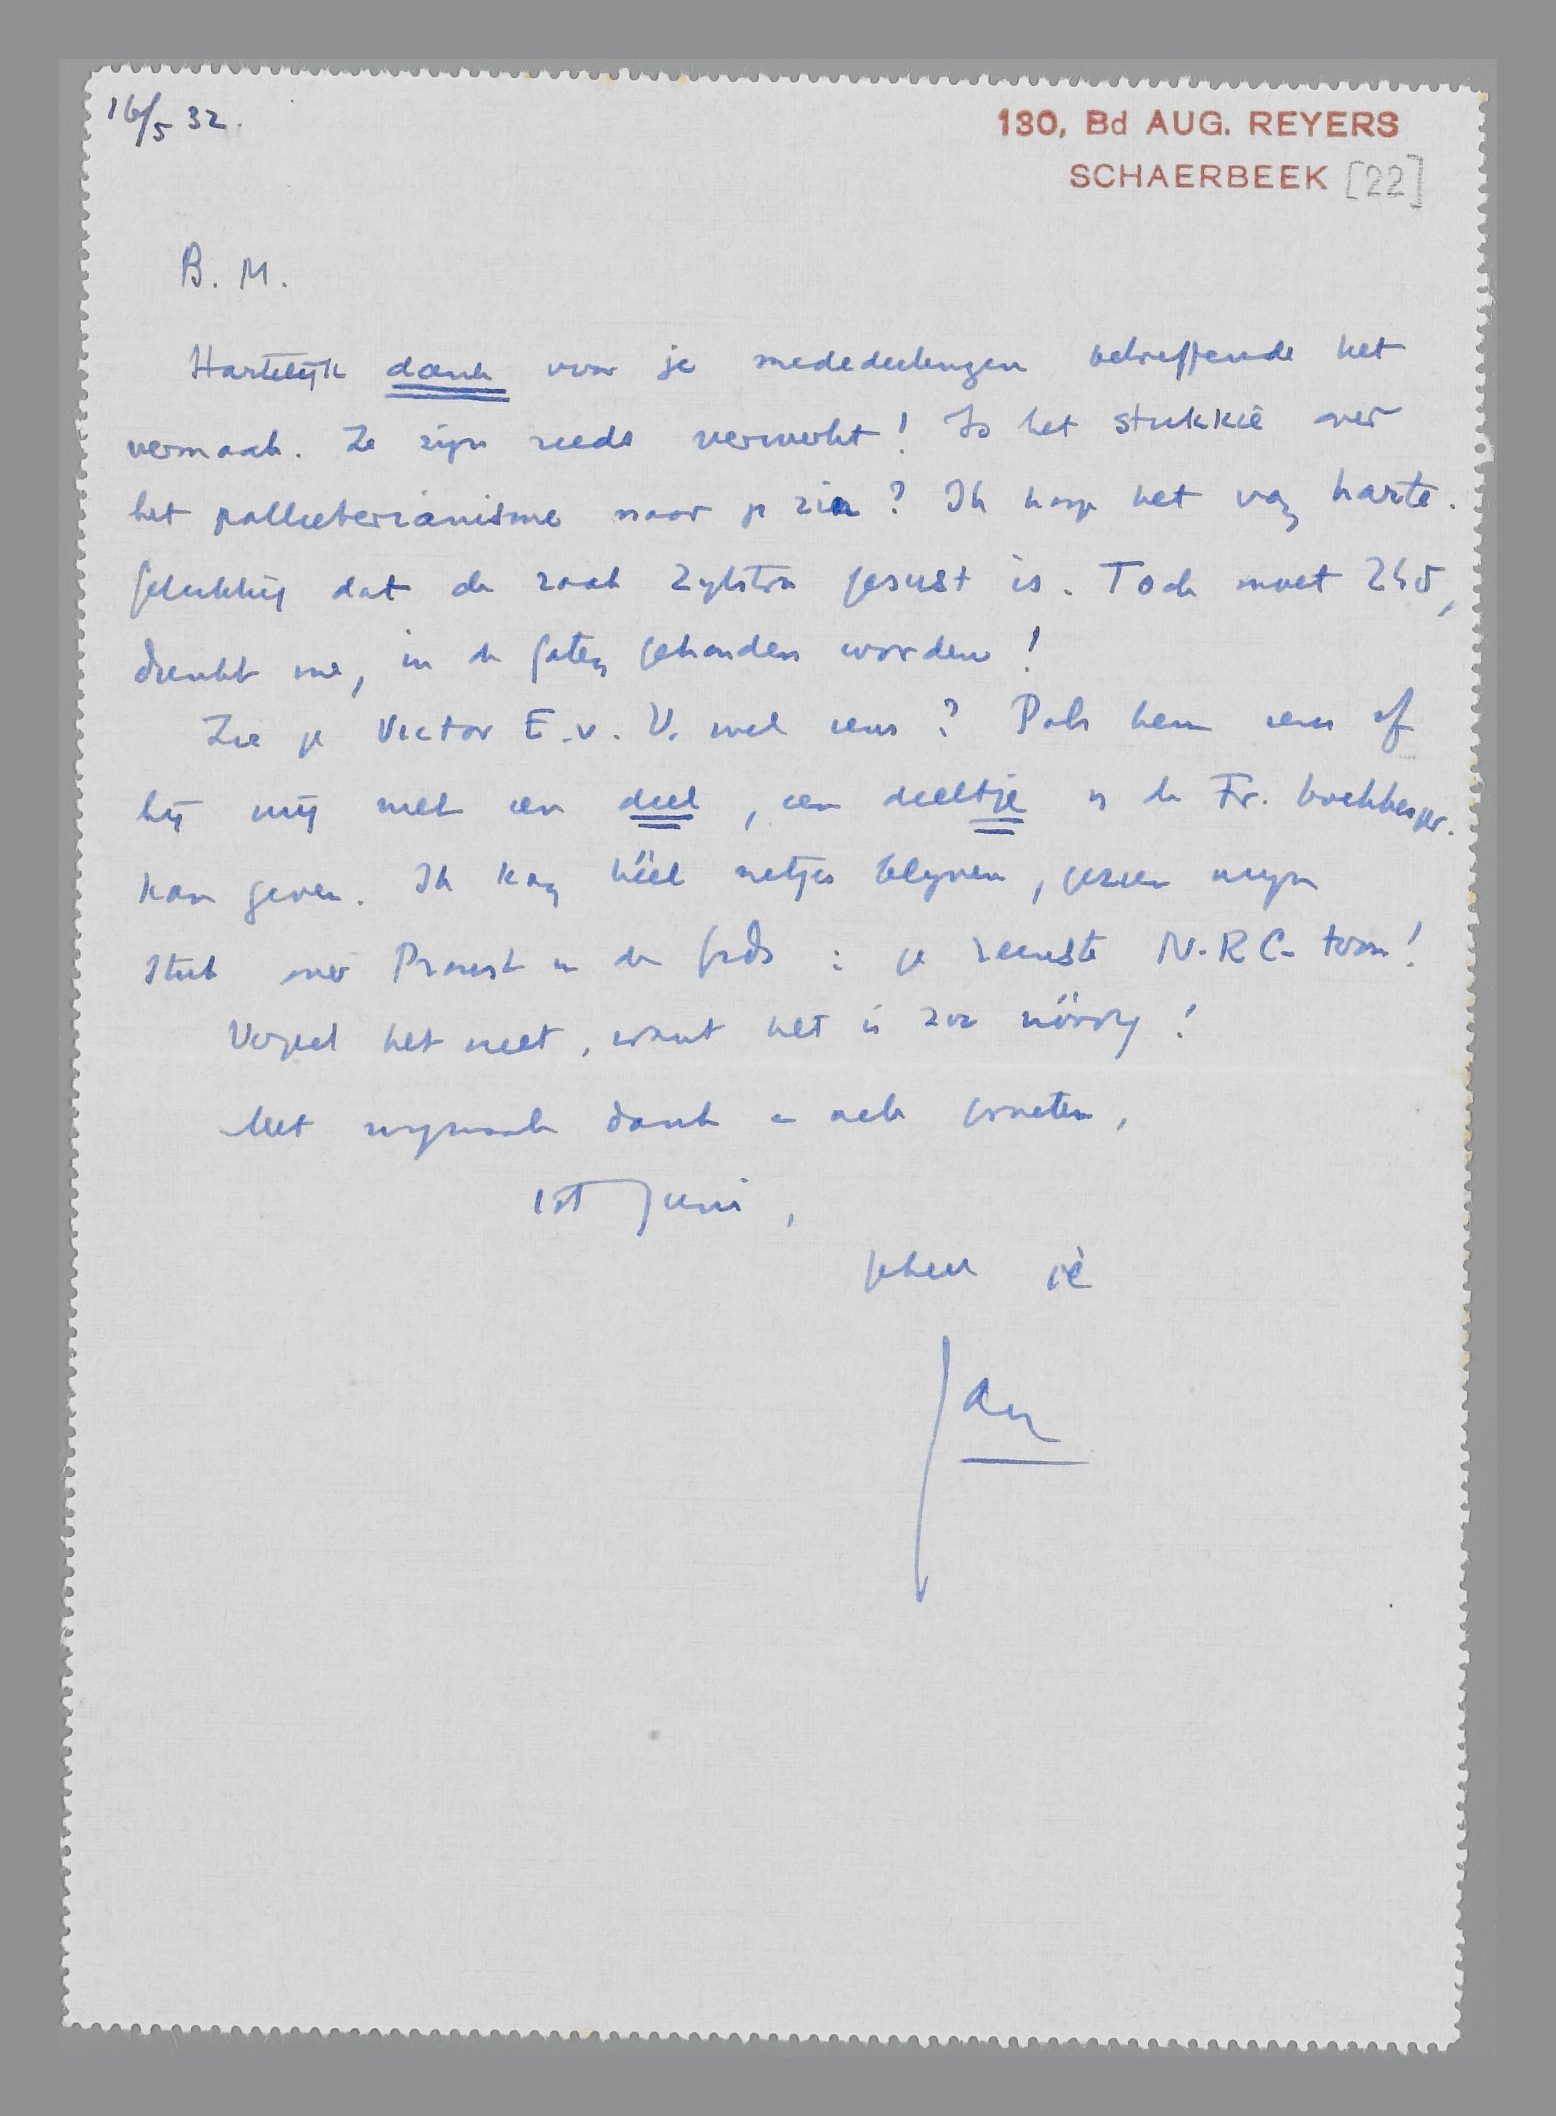 16/5 32.
130, Bd AUG. REYERS
SCHAERBEEK [22]
B. M.
Hartelijk dank voor je mededeelingen betreffende het
vermaak. Ze zijn reeds verwerkt! Is het stukkie over
het pallieterianisme naar je zin? Ik hoop het van harte.
Gelukkig dat de zaak Zijlstra gesust is. Toch moet Zijl,
dunkt me, in de gaten gehouden worden!
Zie je Victor E. v. V. wel eens? Pols hem eens of
hij mij niet een deel, een deeltje v. de Fr. boekbespr.
kan geven. Ik kan héél netjes blijven, gezien mijn
stuk over Proust in de Gids: je reenste N.R.C.-toon!
Vergeet het niet, want het is zoo nóódig!
Met nogmaals dank en veel groeten,
tot Juni,
geheel je
Jan